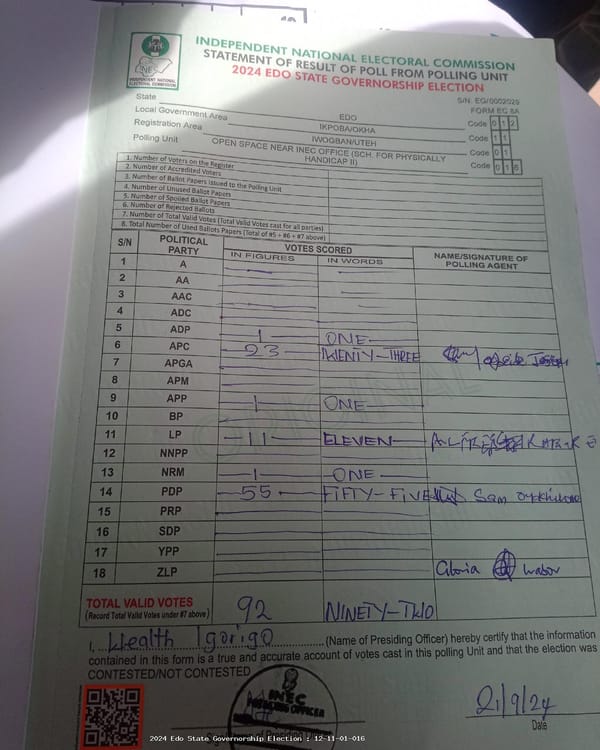 INDEPENDENT NATIONAL ELECTORAL COMMISSION
STATEMENT OF RESULT OF POLL FROM POLLING UNIT
2024 EDO STATE GOVERNORSHIP ELECTION
INEC
INDEPENDENT NATIONAL
ELECTORAL COMMISSION
S/N. EG/0002029
FORM EC 8A
State EDO Code 0 1 2
Local Government Area IKPOBA/OKHA Code 1 1
Registration Area IWOGBAN/UTEH Code 0 1
Polling Unit OPEN SPACE NEAR INEC OFFICE (SCH. FOR PHYSICALLY HANDICAP II) Code 0 1 6
1. Number of Voters on the Register
2. Number of Accredited Voters
3. Number of Ballot Papers Issued to the Polling Unit
4. Number of Unused Ballot Papers
5. Number of Spoiled Ballot Papers
6. Number of Rejected Ballots
7. Number of Total Valid Votes (Total Valid Votes cast for all parties)
8. Total Number of Used Ballots Papers (Total of #5 + #6 + #7 above)
S/N POLITICAL PARTY VOTES SCORED NAME/SIGNATURE OF POLLING AGENT
IN FIGURES IN WORDS
1 A
2 AA
3 AAC
4 ADC
5 ADP 1 ONE
6 APC 23 TWENTY-THREE
7 APGA
8 APM
9 APP 1 ONE
10 BP
11 LP 11 ELEVEN
12 NNPP
13 NRM 1 ONE
14 PDP 55 FIFTY-FIVE Sam
15 PRP
16 SDP
17 YPP
18 ZLP Gloria
ORIGINAL
TOTAL VALID VOTES 92 NINETY-TWO
(Record Total Valid Votes under #7 above)
I, Health Igorigo (Name of Presiding Officer) hereby certify that the information
contained in this form is a true and accurate account of votes cast in this polling Unit and that the election was
CONTESTED/NOT CONTESTED
INEC
PRESIDING OFFICER
21/9/24
Date
2024 Edo State Governorship Election : 12-11-01-016